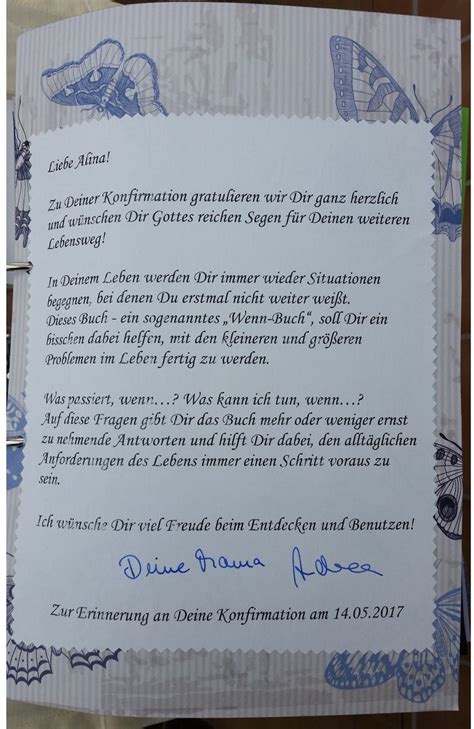 Liebe Alina!
Zu Deiner Konfirmation gratulieren wir Dir ganz herzlich
und wünschen Dir Gottes reichen Segen für Deinen weiteren
Lebensweg!
In Deinem Leben werden Dir immer wieder Situationen
begegnen, bei denen Du erstmal nicht weiter weißt.
Dieses Buch - ein sogenanntes „Wenn-Buch“, soll Dir ein
bisschen dabei helfen, mit den kleineren und größeren
Problemen im Leben fertig zu werden.
Was passiert, wenn…? Was kann ich tun, wenn…?
Auf diese Fragen gibt Dir das Buch mehr oder weniger ernst
zu nehmende Antworten und hilft Dir dabei, den alltäglichen
Anforderungen des Lebens immer einen Schritt voraus zu
sein.
Ich wünsche Dir viel Freude beim Entdecken und Benutzen!
Deine Mama Andrea
Zur Erinnerung an Deine Konfirmation am 14.05.2017